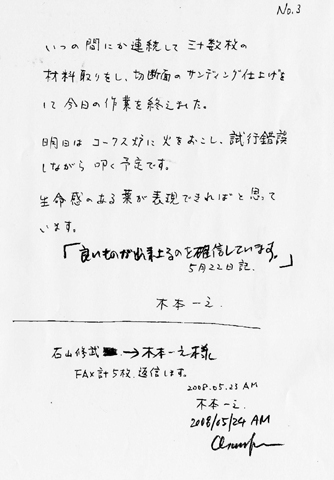 No.3
いつの間にか連続して三十数枚の
材料取りをし、切断面のサンディング仕上げを
して今日の作業を終えれた。
明日はコークス炉に火をおこし、試行錯誤
しながら叩く予定です。
生命感のある葉が表現できればと思って
います。
「良いものが出来上るのを確信しています。」
5月22日記.
木本一之
石山修武 → 木本一之様
FAX計5枚.返信します。
2008.05.23 AM
木本一之.
2008/05/24 AM